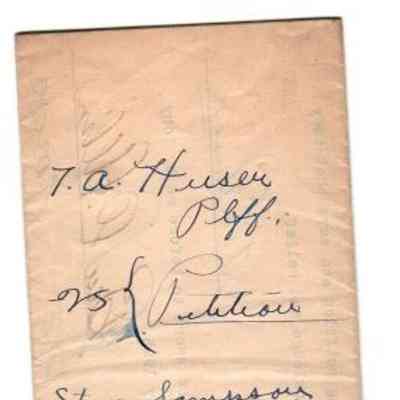 T. A. Huser
Plff.
vs { Petition
Sampson